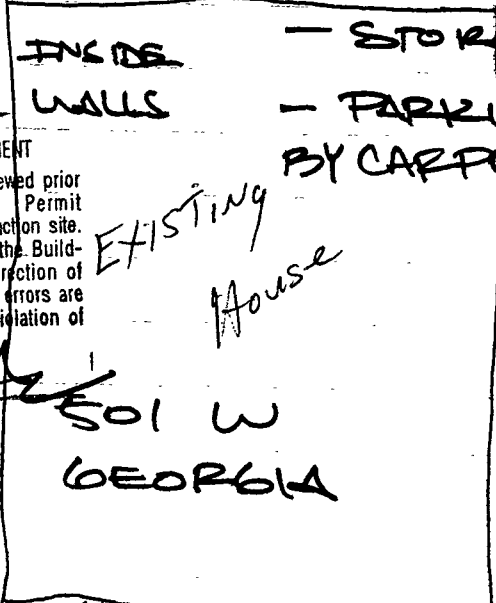 INSIDE
WALLS
- STOR
- PARKI
BY CARPO
ENT
ewed prior
Permit
ction site.
the Build-
rection of
errors are
iolation of
EXISTING
House
501 W
GEORGIA